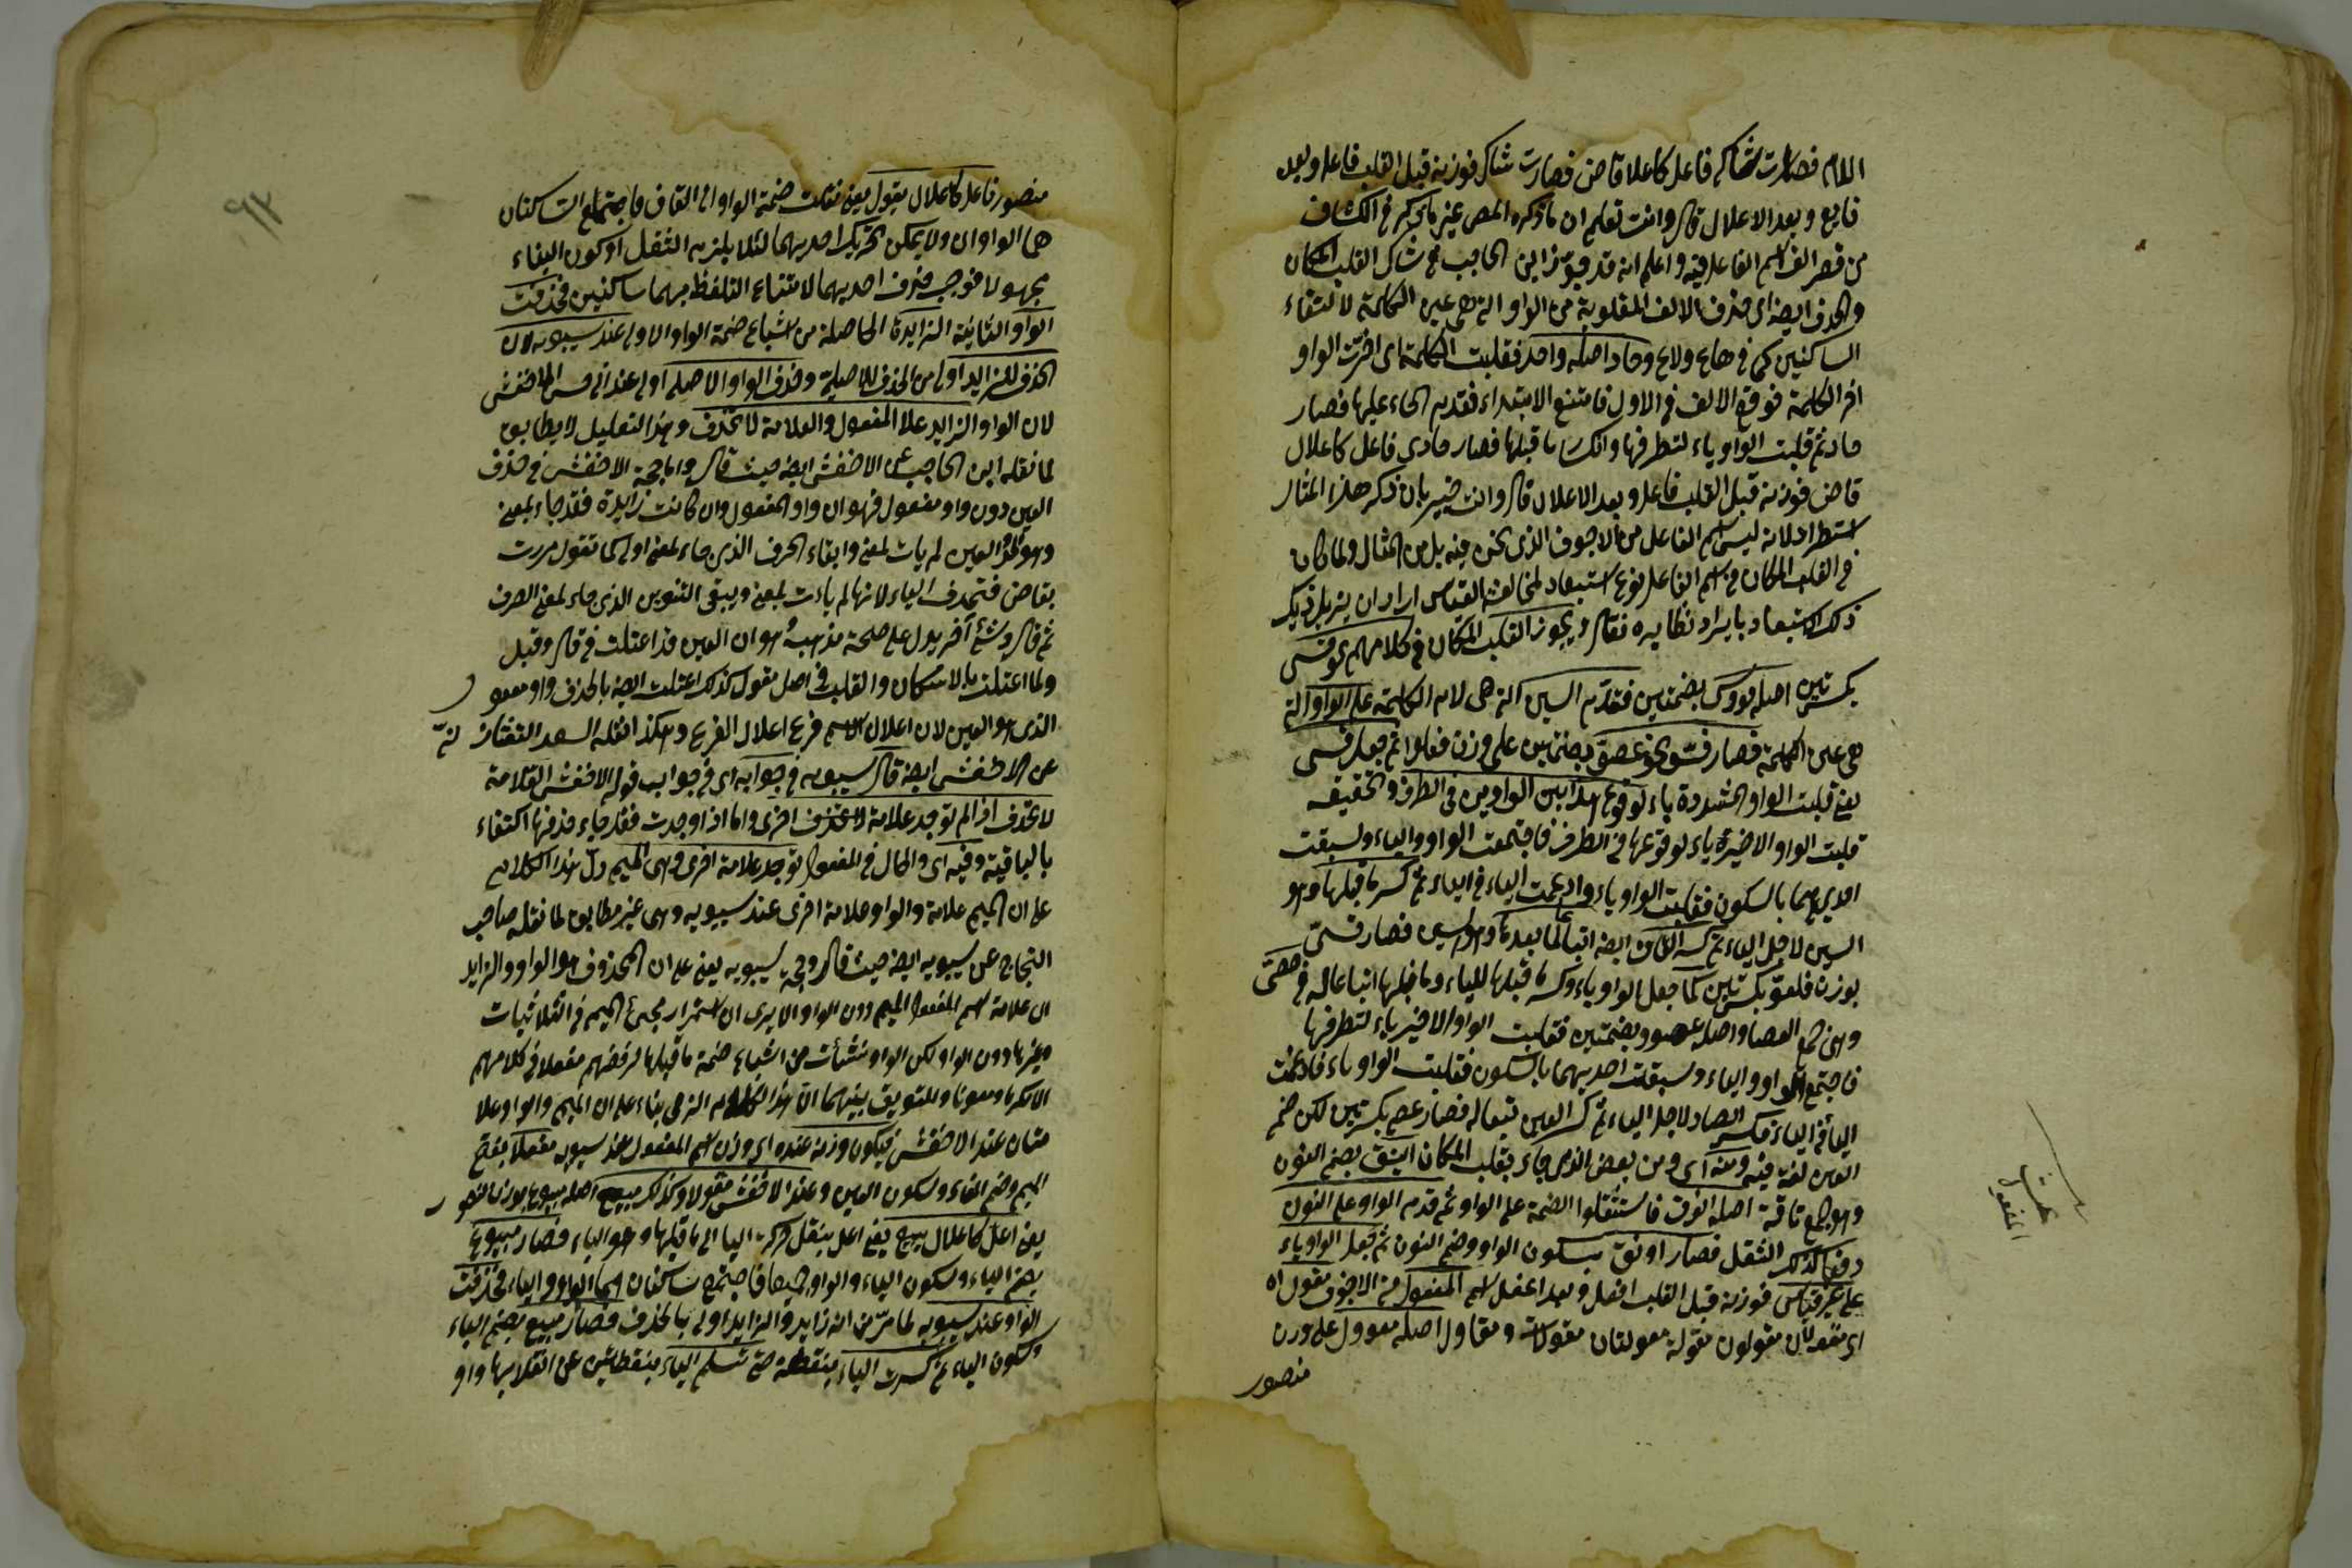 اللام فصارت شاكى فاعل كاعلا قاض فصارت شاك فوزنه قبل القلب فاعل وبعد
فايع وبعد الاعلال قال وانت تعلم ان ما ذكره المص غير ما ذكر فى الكشاف
من قصر الف اسم الفاعل فيه واعلم انه قد جوز ابن الحاجب فى شاك القلب المكان
والحذف ايضا اى حذف الالف المقلوبة من الواو التى هى عين الكلمة لالتقاء
الساكنين كما فى هاع ولاع وحاد اصله واحد فقلبت الكلمة اى اخرت الواو
اخر الكلمة فوقع الالف فى الاول فامتنع الابتداء فقدم الحاء عليها فصار
حادو ثم قلبت الواو ياء لتطرفها وانكسار ما قبلها فصار حادى فاعل كاعلال
قاض فوزنه قبل القلب فاعل وبعد الاعلال قال وانت خبير بان ذكر هذا المثال
استطراد لانه ليس اسم الفاعل من الاجوف الذى نحن فيه بل من المثال ولما كان
فى القلب المكان فى اسم الفاعل نوع استبعاد لمخالفة القياس اراد ان يزيل
ذلك الاستبعاد بايراد نظايره فقال ويجوز القلب المكان فى كلامهم نحو قسى
بكسرتين اصله قووس بضمتين فقدم السين التى هى لام الكلمة على الواو التى
هى عين الكلمة فصار قسو نحو عصو بضمتين على وزن فعلوا ثم جعل قسى
يعنى قلبت الواو المشددة ياء لوقوع هذا بين الواوين فى الطرف وتخفيفه
قلبت الواو الاخيرة ياء لوقوعها فى الطرف فاجتمعت الواو والياء وسبقت
احديهما بالسكون فقلبت الواو ياء وادغمت الياء فى الياء ثم كسر ما قبلها وهو
السين لاجل الياء ثم كسر القاف ايضا اتباعا لما بعدها وهو السين فصار قسى
بوزن فلعو بكسرتين كما جعل الواو ياء وكسر ما قبلها للياء وما قبلها اتباعا له فى عصى
وهى جمع العصا واصله عصوو بضمتين فقلبت الواو الاخير ياء لتطرفها
فاجتمع الواو والياء وسبقت احديهما بالسكون فقلبت الواو ياء فادغمت
الياء فى الياء فكسر الصاد لاجل الياء ثم كسر العين تبعا له فصار عصى بكسرتين لكن ضم
العين لغة فيه ومنه اى ومن بعض الذى جاء بقلب المكان اينق بضم النون
وهو جمع ناقة اصله انوق فاستثقلوا الضمة على الواو ثم قدم الواو على النون
دفعا لذلك الثقل فصار اونق بسكون الواو وضم النون ثم جعل الواو ياء
على غير قياس فوزنه قبل القلب افعل وبعد اعفل اسم المفعول من الاجوف مقول اه
اى مقولان مقولون مقولة مقولتان مقولات ومقاول اصله مقوول على وزن
منصور
المفعول
٩٣
منصور فاعل كاعلال يقول يعنى نقلت ضمة الواو الى القاف فاجتمع الساكنان
هما الواوان ولا يمكن تحريك احديهما لئلا يلزم الثقل او كون البناء
مجهولا فوجب حذف احديهما لامتناع التلفظ بهما ساكنين فحذفت
الواو الثانية الزايدة الحاصلة من اشباع ضمة الواو الاولى عند سيبويه لان
الحذف للزايد اولى من الحذف للاصلية وحذف الواو الاصل اولى عند ابى الحسن الاخفش
لان الواو الزايد علامة المفعول والعلامة لا تحذف وهذا التعليل لا يطابق
لما نقله ابن الحاجب عن الاخفش ايضا حيث قال واما حجة الاخفش فى حذف
العين دون واو مفعول فهو ان واو المفعول وان كانت زايدة فقد جاء لمعنى
وهو المد والعين لم يات لمعنى وابقاء الحرف الذى جاء لمعنى اولى كما تقول مررت
بقاض فتحذف الياء لانها لم يات لمعنى ويبقى التنوين الذى جاء لمعنى الصرف
ثم قال وشئ آخر يدل على صحة مذهبه هو ان العين قد اعتلت فى قال وقيل
ولما اعتلت بالاسكان والقلب فى اصل مقول كذلك اعتلت ايضا بالحذف واو مفعول
الذى هو العين لان اعلال الاسم فرع اعلال الفرع وهكذا نقله السعد التفتازانى
عن الاخفش ايضا قال سيبويه فى جوابه اى فى جواب قول الاخفش العلامة
لا تحذف اذا لم توجد علامة اخرى واما اذا وجدت فقد جاء حذفها اكتفاء
بالباقية وفيه اى والحال فى المفعول توجد علامة اخرى وهى الميم دل هذا الكلام
على ان الميم علامة والواو علامة اخرى عند سيبويه وهى غير مطابق لما نقله صاحب
النجاح عن سيبويه ايضا حيث قال وحجة سيبويه يعنى على ان المحذوف هو الواو والزايد
ان علامة اسم المفعول الميم دون الواو الا يرى ان استمرار مجئ الميم فى الثلاثيات
وغيرها دون الواو لكن الواو نشئات من اشباع ضمة ما قبلها لرفضهم مفعلا فى كلامهم
الا مكرما ومعونا وللتوفيق بينهما ان هذا الكلام الزمى بناء على ان الميم والواو علا
متان عند الاخفش فيكون وزنه عنده اى وزن اسم المفعول عند سيبويه مفعلا بفتح
الميم وضم الفاء وسكون العين وعند الاخفش مفولا وكذلك مبيع اصله مبيوع بوزن منصور
يعنى اعل كاعلال يبيع يعنى اعل بنقل حركة اليا الى ما قبلها وهو الباء فصار مبيوع
بضم الباء وسكون الياء والواو جميعا فاجتمع ساكنان هما الواو والياء فحذفت
الواو عند سيبويه لما مر من انه زايد والزايد اولى بالحذف فصار مبيع بضم الباء
وسكون الياء ثم كسرت الباء بنقطة حتى تسلم الياء بنقطتين عن انقلابها واو